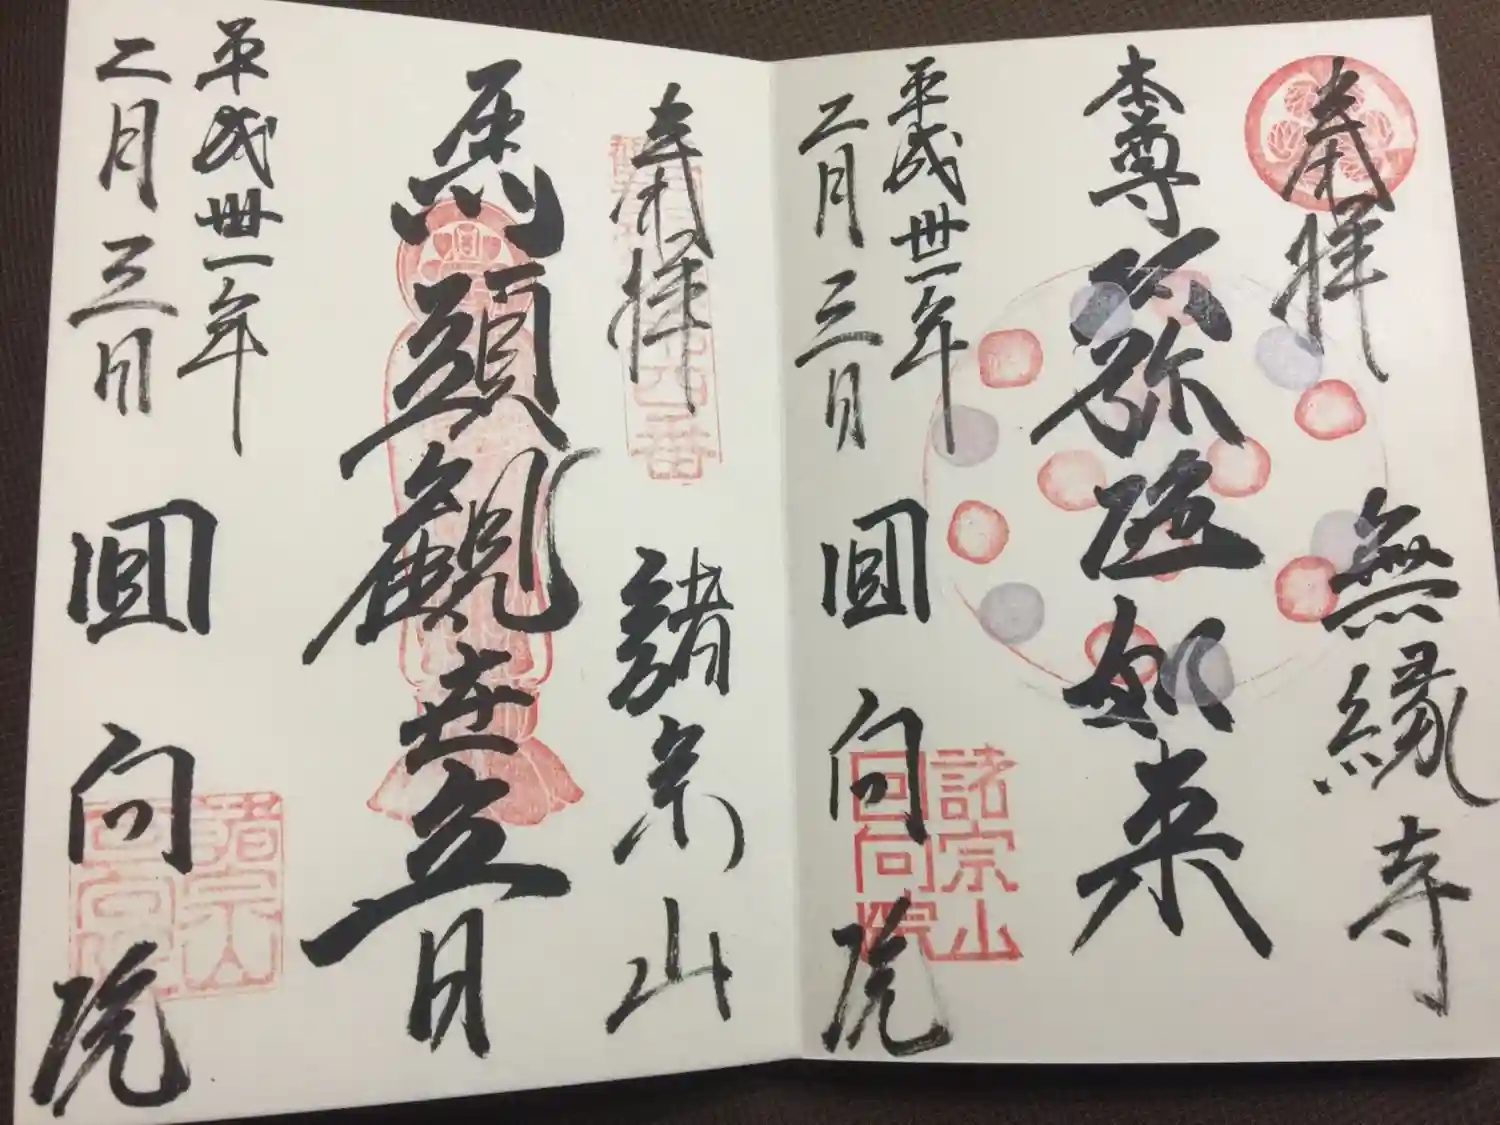 奉拝
無縁寺
本尊
阿弥陀如来
平成卅一年
二月三日
回向院
諸宗山
回向院
奉拝
諸宗山
馬頭観世音
平成卅一年
二月三日
回向院
諸宗山